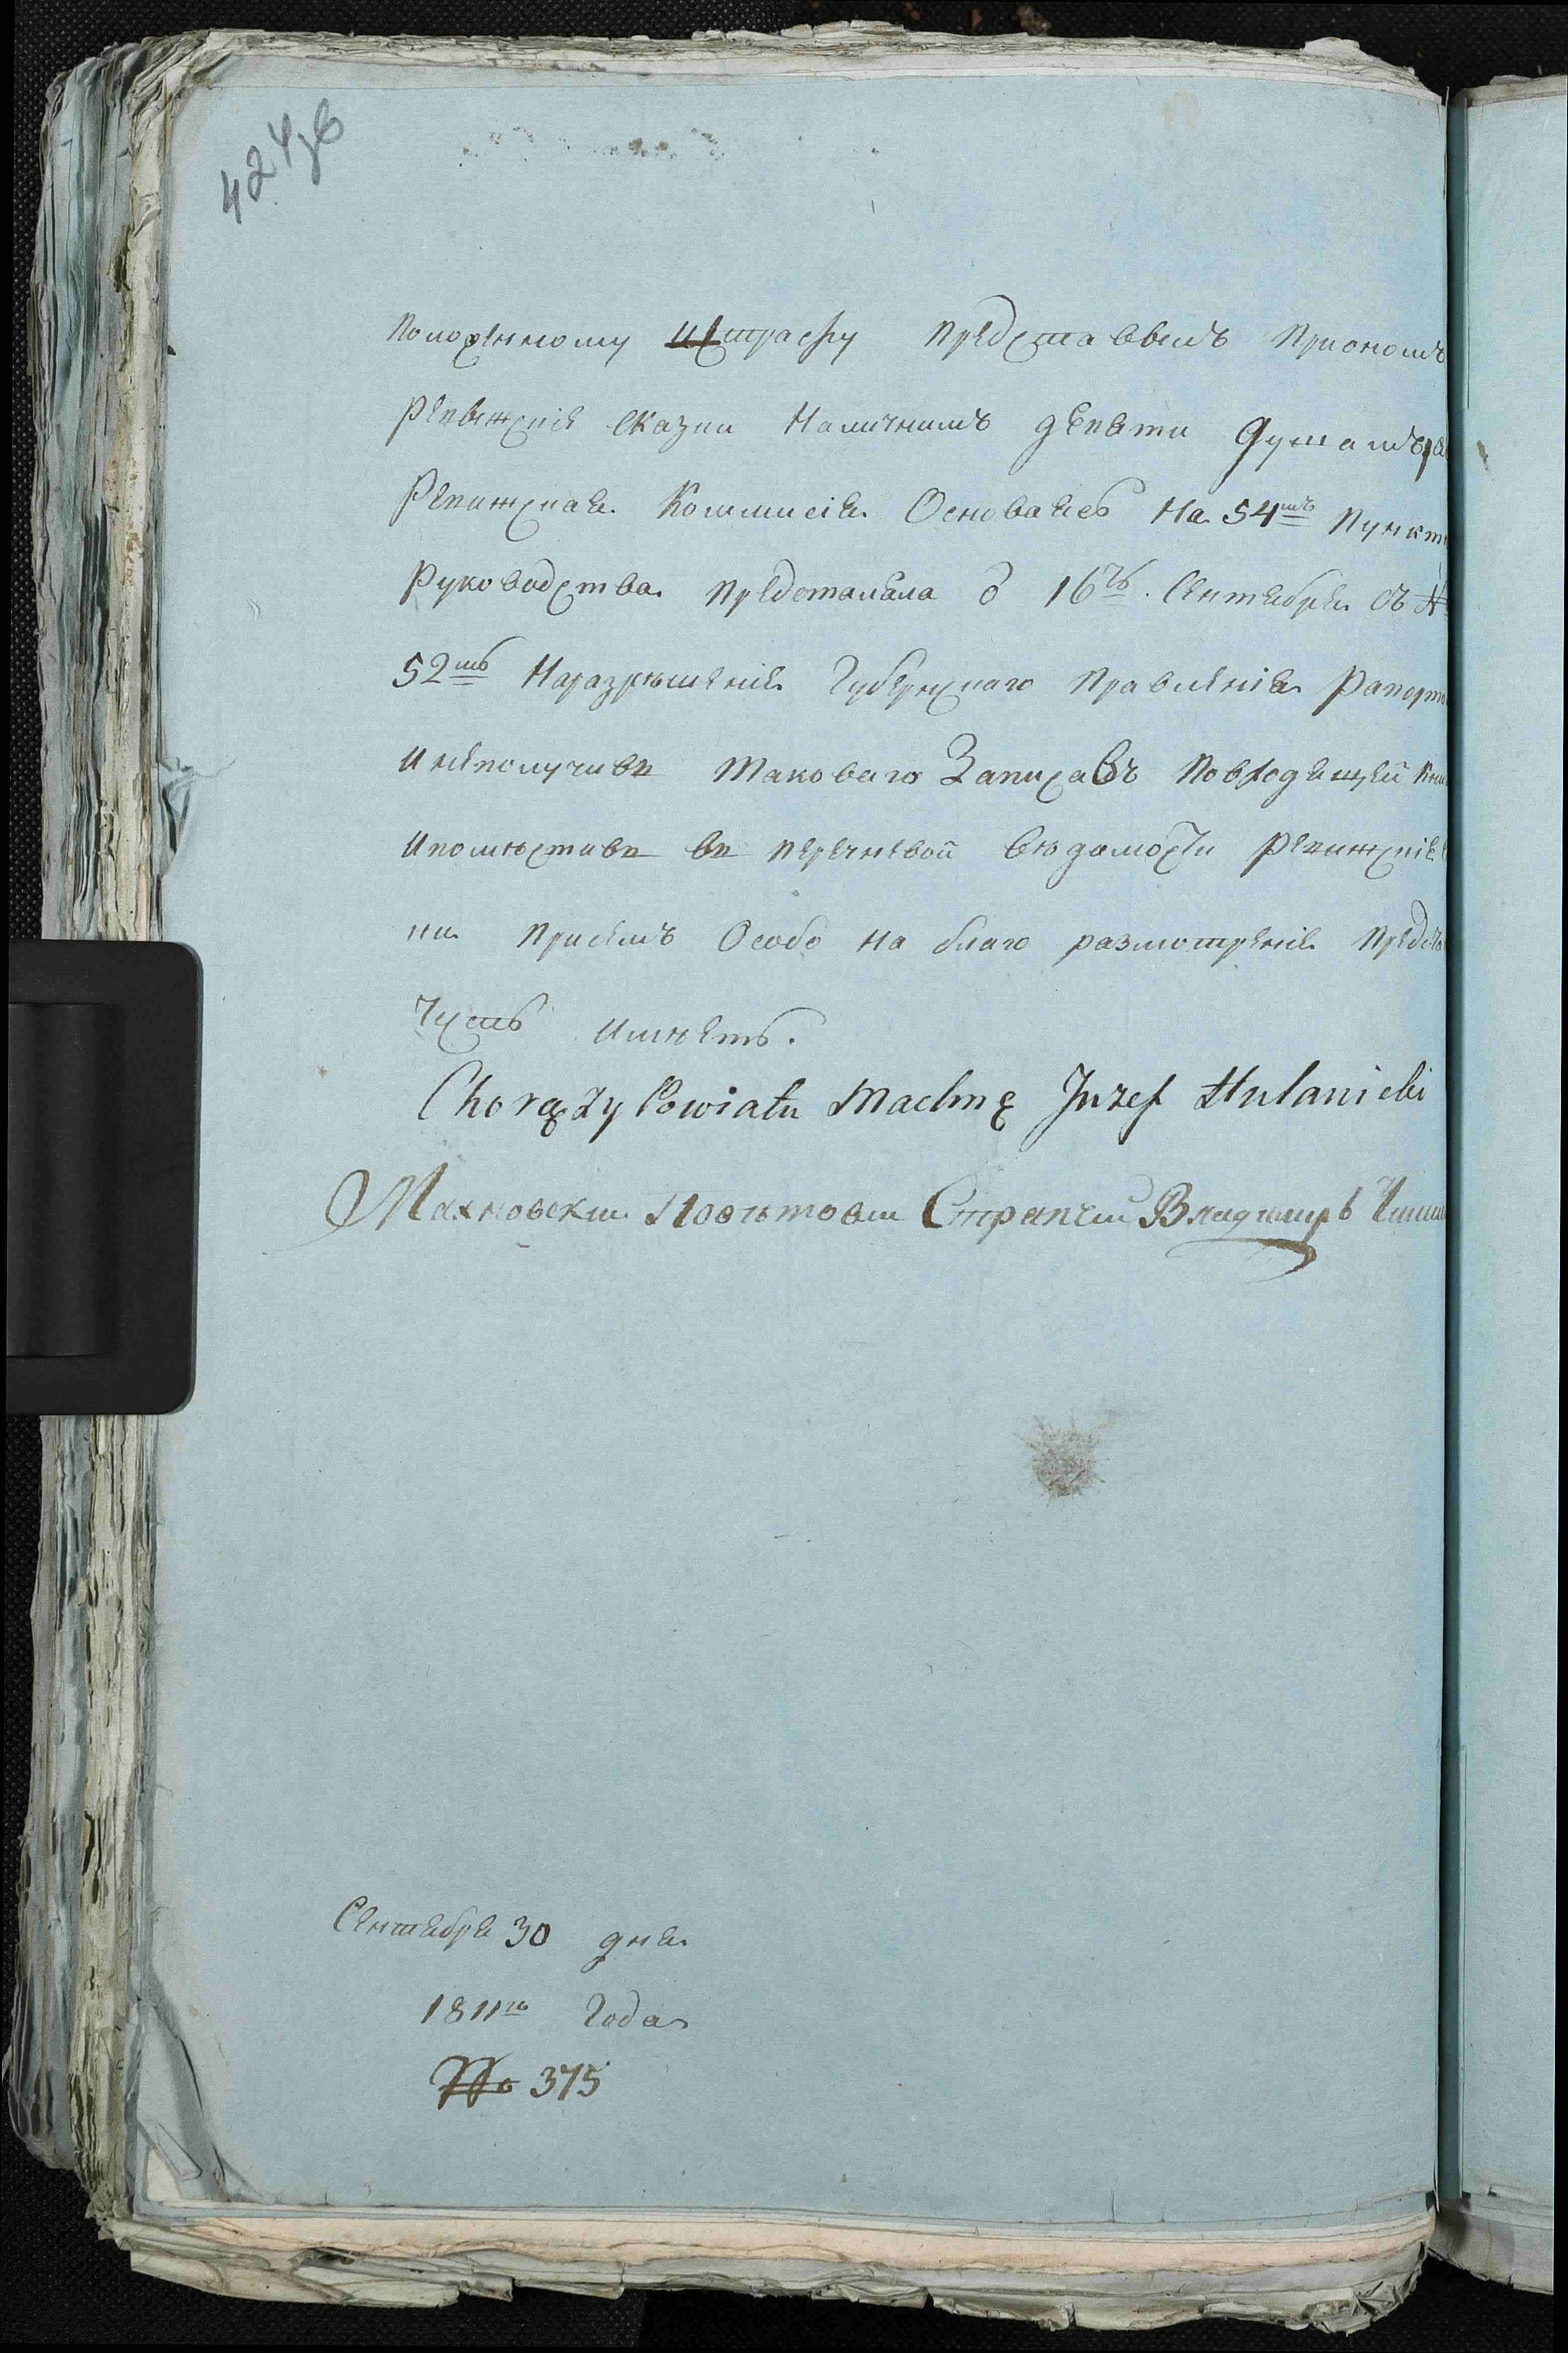 424 об
Положенному штрафу представъвемъ приономъ
ревижскіе сказки наличнимъ девяти душамъ
Ревижская Коммисія Основаясь На 54мъ пункт
Руководства предоталяла З 16го Сентября съ №
52мъ Наразрешеніе Губернскаго Правленія Рапорто
инеполучивъ таковаго Записавъ Повходящей кни
ипоместивъ въ перечневой ведамости ревижскіе
ки присемъ Особо на благо размотреніе предста
честь имеетъ.
Chorąży Powiatu Machnę Juzef Hulanicki
Махновски Поветови Стряпчи Владимиръ
Сентября 30 дня
1811го Года
№ 375